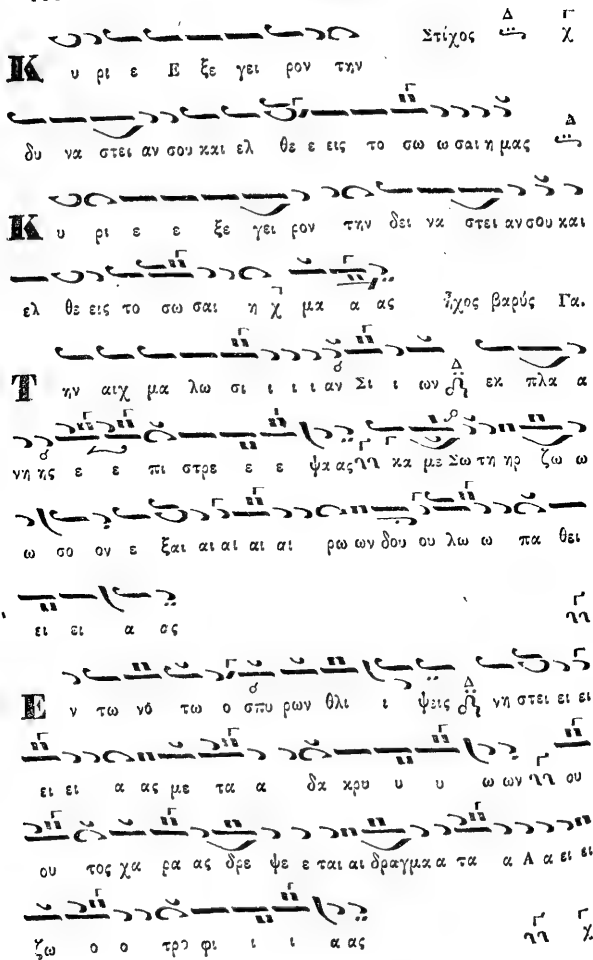 Στίχος Δ Γ χ
Κ υ ρι ε Ε ξε γει ρον την
δυ να στει αν σου και ελ θε ε εις το σω ω σαι η μας Δ
Κ υ ρι ε ε ξε γει ρον την δει να στει αν σου και
ελ θε εις το σω σαι η χ μα α ας ἦχος βαρύς Γα.
Τ ην αιχ μα λω σι ι ι ι αν Σι ι ων Δ εκ πλα α
νη ης ε ε πι στρε ε ε ψα ας κα με Σω τη ηρ ζω ω
ω σο ον ε ξαι αι αι αι αι ρω ων δου ου λω ω πα θει
ει ει α ας
Ε ν τω νό τω ο σπυ ρων θλι ι ψεις Δ νη στει ει ει
ει ει α ας με τα α δα κρυ υ υ ω ων ου
ου τος χα ρα ας δρε ψε ε ται αι δραγμα α τα α Α α ει ει
ζω ο ο τρο φι ι ι α ας Γ Γ χ